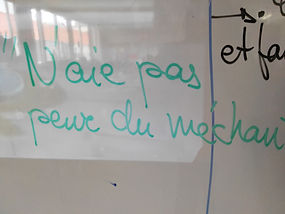 "Naie pas
peur du méchant
et fai